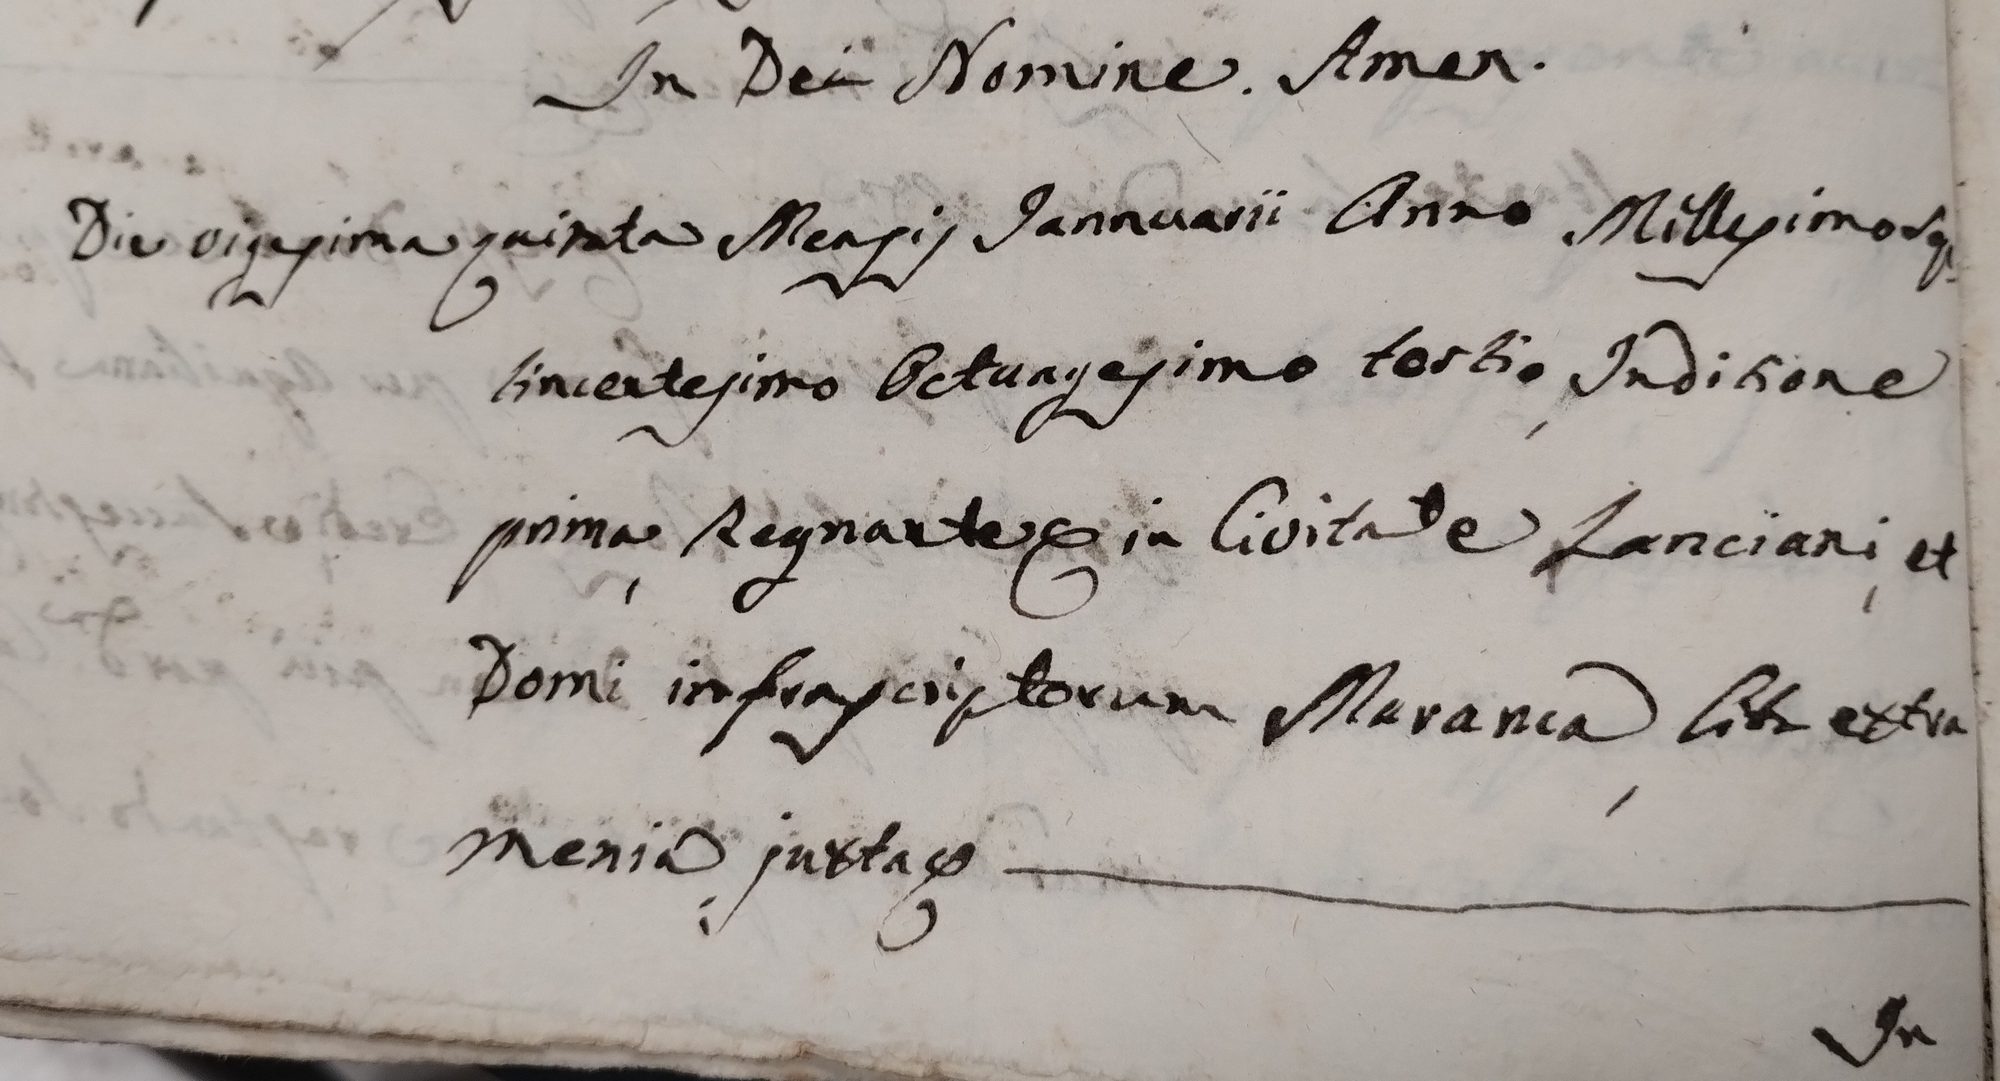 In Dei Nomine. Amen.
Die vigesima quinta Mensis Iannuarii Anno Millesimo Sq.
tincentesimo Octuagesimo tertio, Inditione
prima, Regnante & in Civitate Lanciani, et
Domi infrascriptorum Maranca, extra
menia juxta &
In